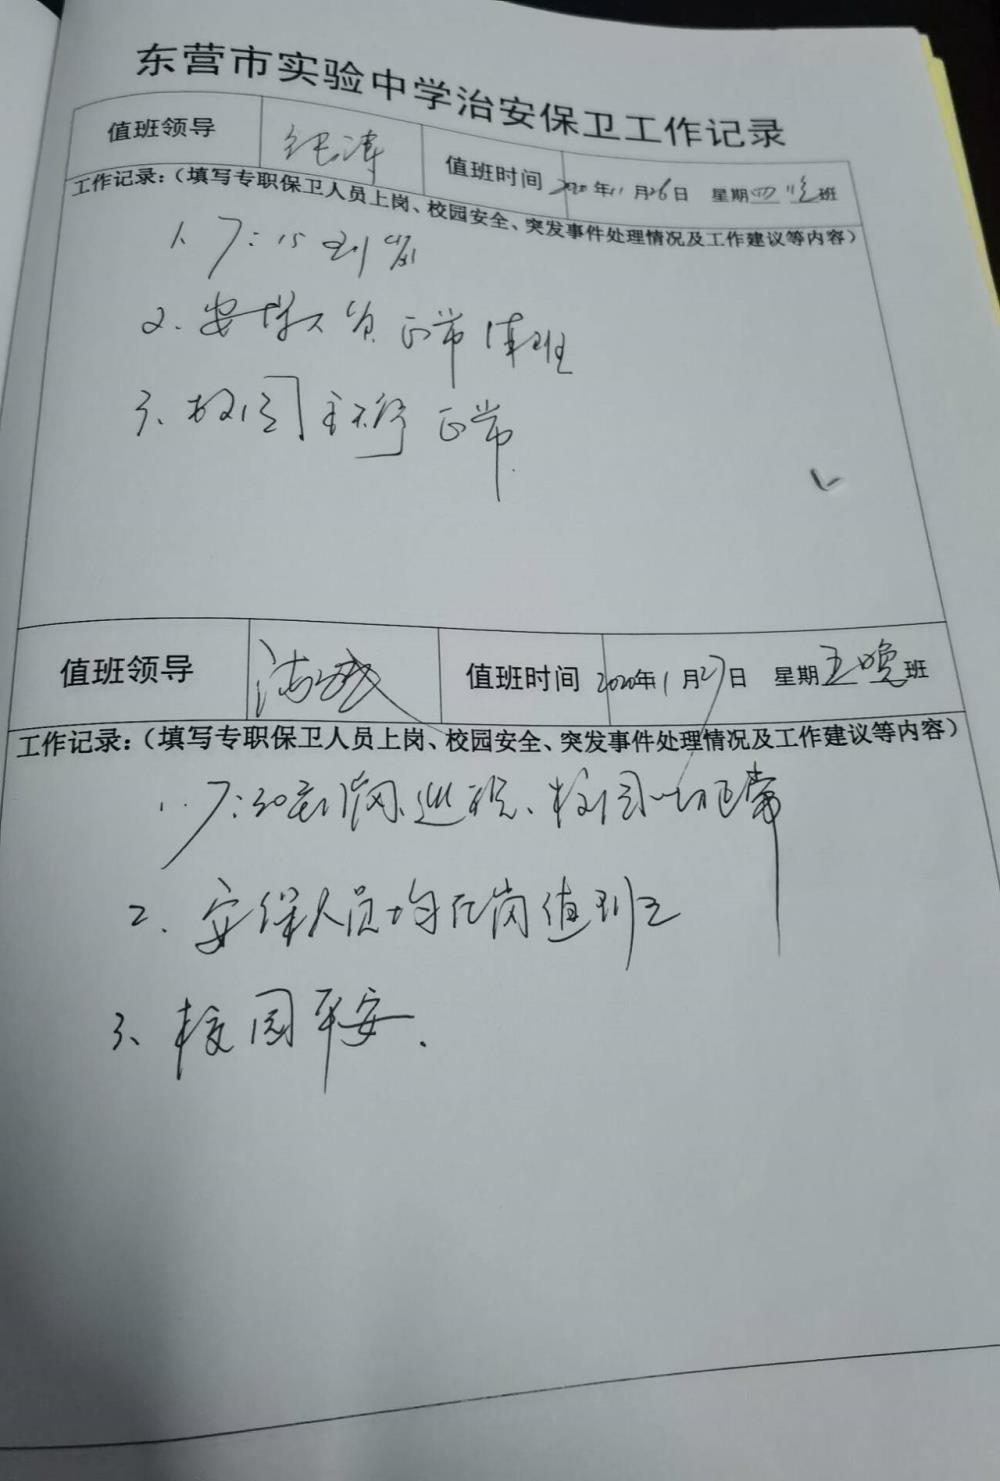 东营市实验中学治安保卫工作记录
值班领导 纪涛 值班时间 2020年11月26日 星期四晚班
工作记录：（填写专职保卫人员上岗、校园安全、突发事件处理情况及工作建议等内容）
1、7:15到岗
2、安保人员正常值班
3、校园 正常
值班领导 值班时间 2020年11月27日 星期五晚班
工作记录：（填写专职保卫人员上岗、校园安全、突发事件处理情况及工作建议等内容）
1、7:30到岗、巡视、校园一切正常
2、安保人员均在岗值班
3、校园平安.